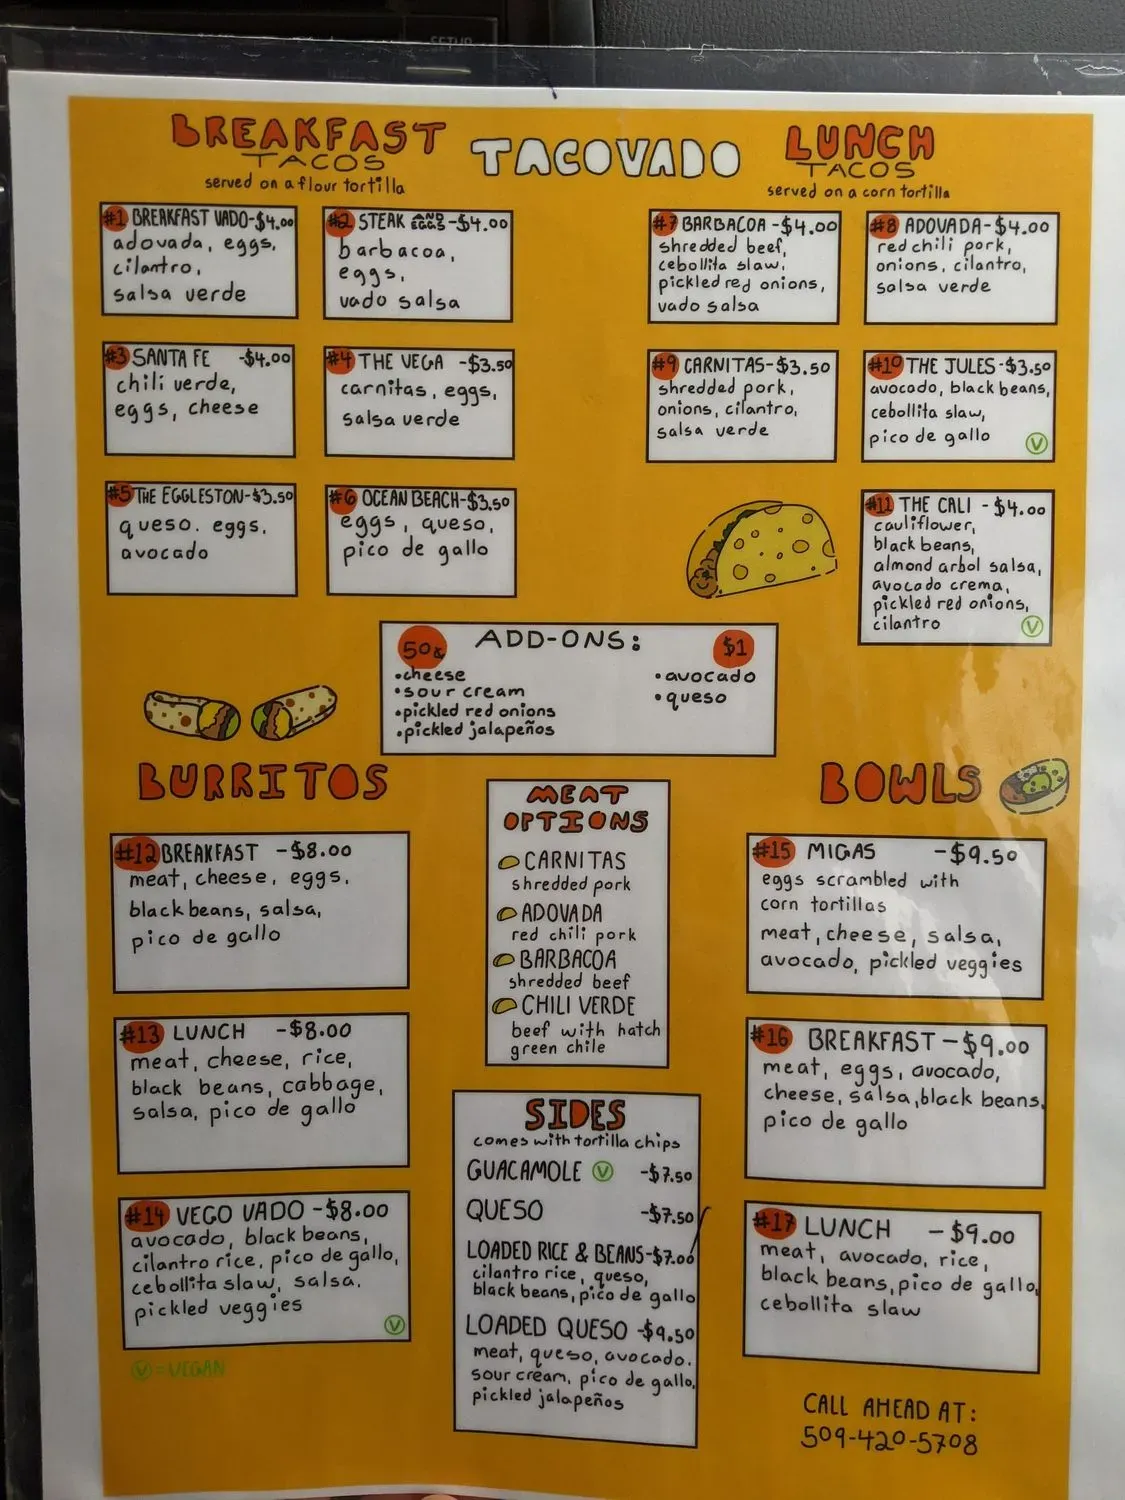 BREAKFAST
TACOS
served on a flour tortilla
TACOVADO
LUNCH
TACOS
served on a corn tortilla
#1 BREAKFAST VADO-$4.00
adovada, eggs,
cilantro,
salsa verde
#2 STEAK AND EGGS -$4.00
barbacoa,
eggs,
vado salsa
#3 SANTA FE -$4.00
chili verde,
eggs, cheese
#4 THE VEGA -$3.50
carnitas, eggs,
salsa verde
#5 THE EGGLESTON-$3.50
queso. eggs,
avocado
#6 OCEAN BEACH-$3.50
eggs, queso,
pico de gallo
#7 BARBACOA -$4.00
shredded beef,
cebollita slaw,
pickled red onions,
vado salsa
#8 ADOVADA-$4.00
red chili pork,
onions, cilantro,
salsa verde
#9 CARNITAS-$3.50
shredded pork,
onions, cilantro,
salsa verde
#10 THE JULES-$3.50
avocado, black beans,
cebollita slaw,
pico de gallo
V
#11 THE CALI - $4.00
cauliflower,
black beans,
almond arbol salsa,
avocado crema,
pickled red onions,
cilantro
V
ADD-ONS:
50¢
•cheese
•sour cream
•pickled red onions
•pickled jalapeños
$1
•avocado
•queso
BURRITOS
#12 BREAKFAST -$8.00
meat, cheese, eggs,
black beans, salsa,
pico de gallo
#13 LUNCH -$8.00
meat, cheese, rice,
black beans, cabbage,
salsa, pico de gallo
#14 VEGO VADO -$8.00
avocado, black beans,
cilantro rice, pico de gallo,
cebollita slaw, salsa.
pickled veggies
V
V = VEGAN
MEAT
OPTIONS
CARNITAS
shredded pork
ADOVADA
red chili pork
BARBACOA
shredded beef
CHILI VERDE
beef with hatch
green chile
SIDES
comes with tortilla chips
GUACAMOLE V -$7.50
QUESO -$7.50
LOADED RICE & BEANS-$7.00
cilantro rice, queso,
black beans, pico de gallo
LOADED QUESO -$9.50
meat, queso, avocado.
sour cream, pico de gallo,
pickled jalapeños
BOWLS
#15 MIGAS -$9.50
eggs scrambled with
corn tortillas
meat, cheese, salsa,
avocado, pickled veggies
#16 BREAKFAST -$9.00
meat, eggs, avocado,
cheese, salsa, black beans,
pico de gallo
#17 LUNCH -$9.00
meat, avocado, rice,
black beans, pico de gallo,
cebollita slaw
CALL AHEAD AT:
509-420-5708